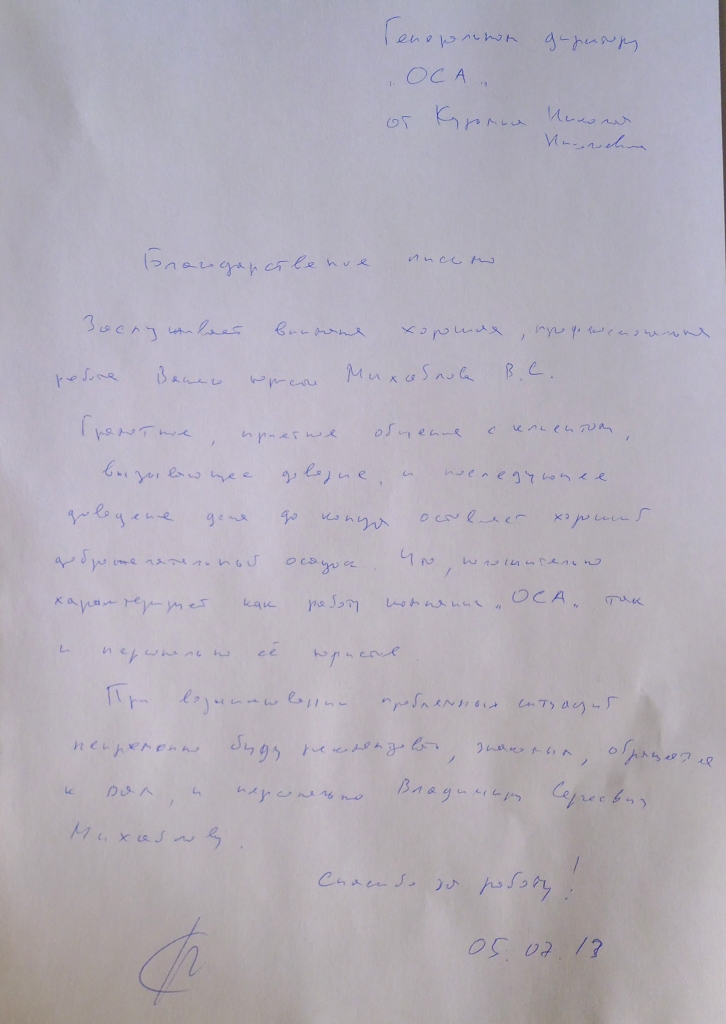 Генеральному директору
"ОСА"
от Николая
Николаевича
Благодарственное письмо
Заслуживает внимания хорошая, профессиональная
работа Вашего юриста Михайлова В.С.
Грамотное, приятное общение с клиентом,
вызывающее доверие, и последующее
доведение дела до конца оставляет хороший
доброжелательный осадок. Что, положительно
характеризует как работу компании "ОСА" так
и персонально её юристов
При возникновении проблемных ситуаций
непременно буду рекомендовать, знакомым, обращаться
к Вам, и персонально Владимиру Сергеевичу
Михайлову.
Спасибо за работу!
05.07.13